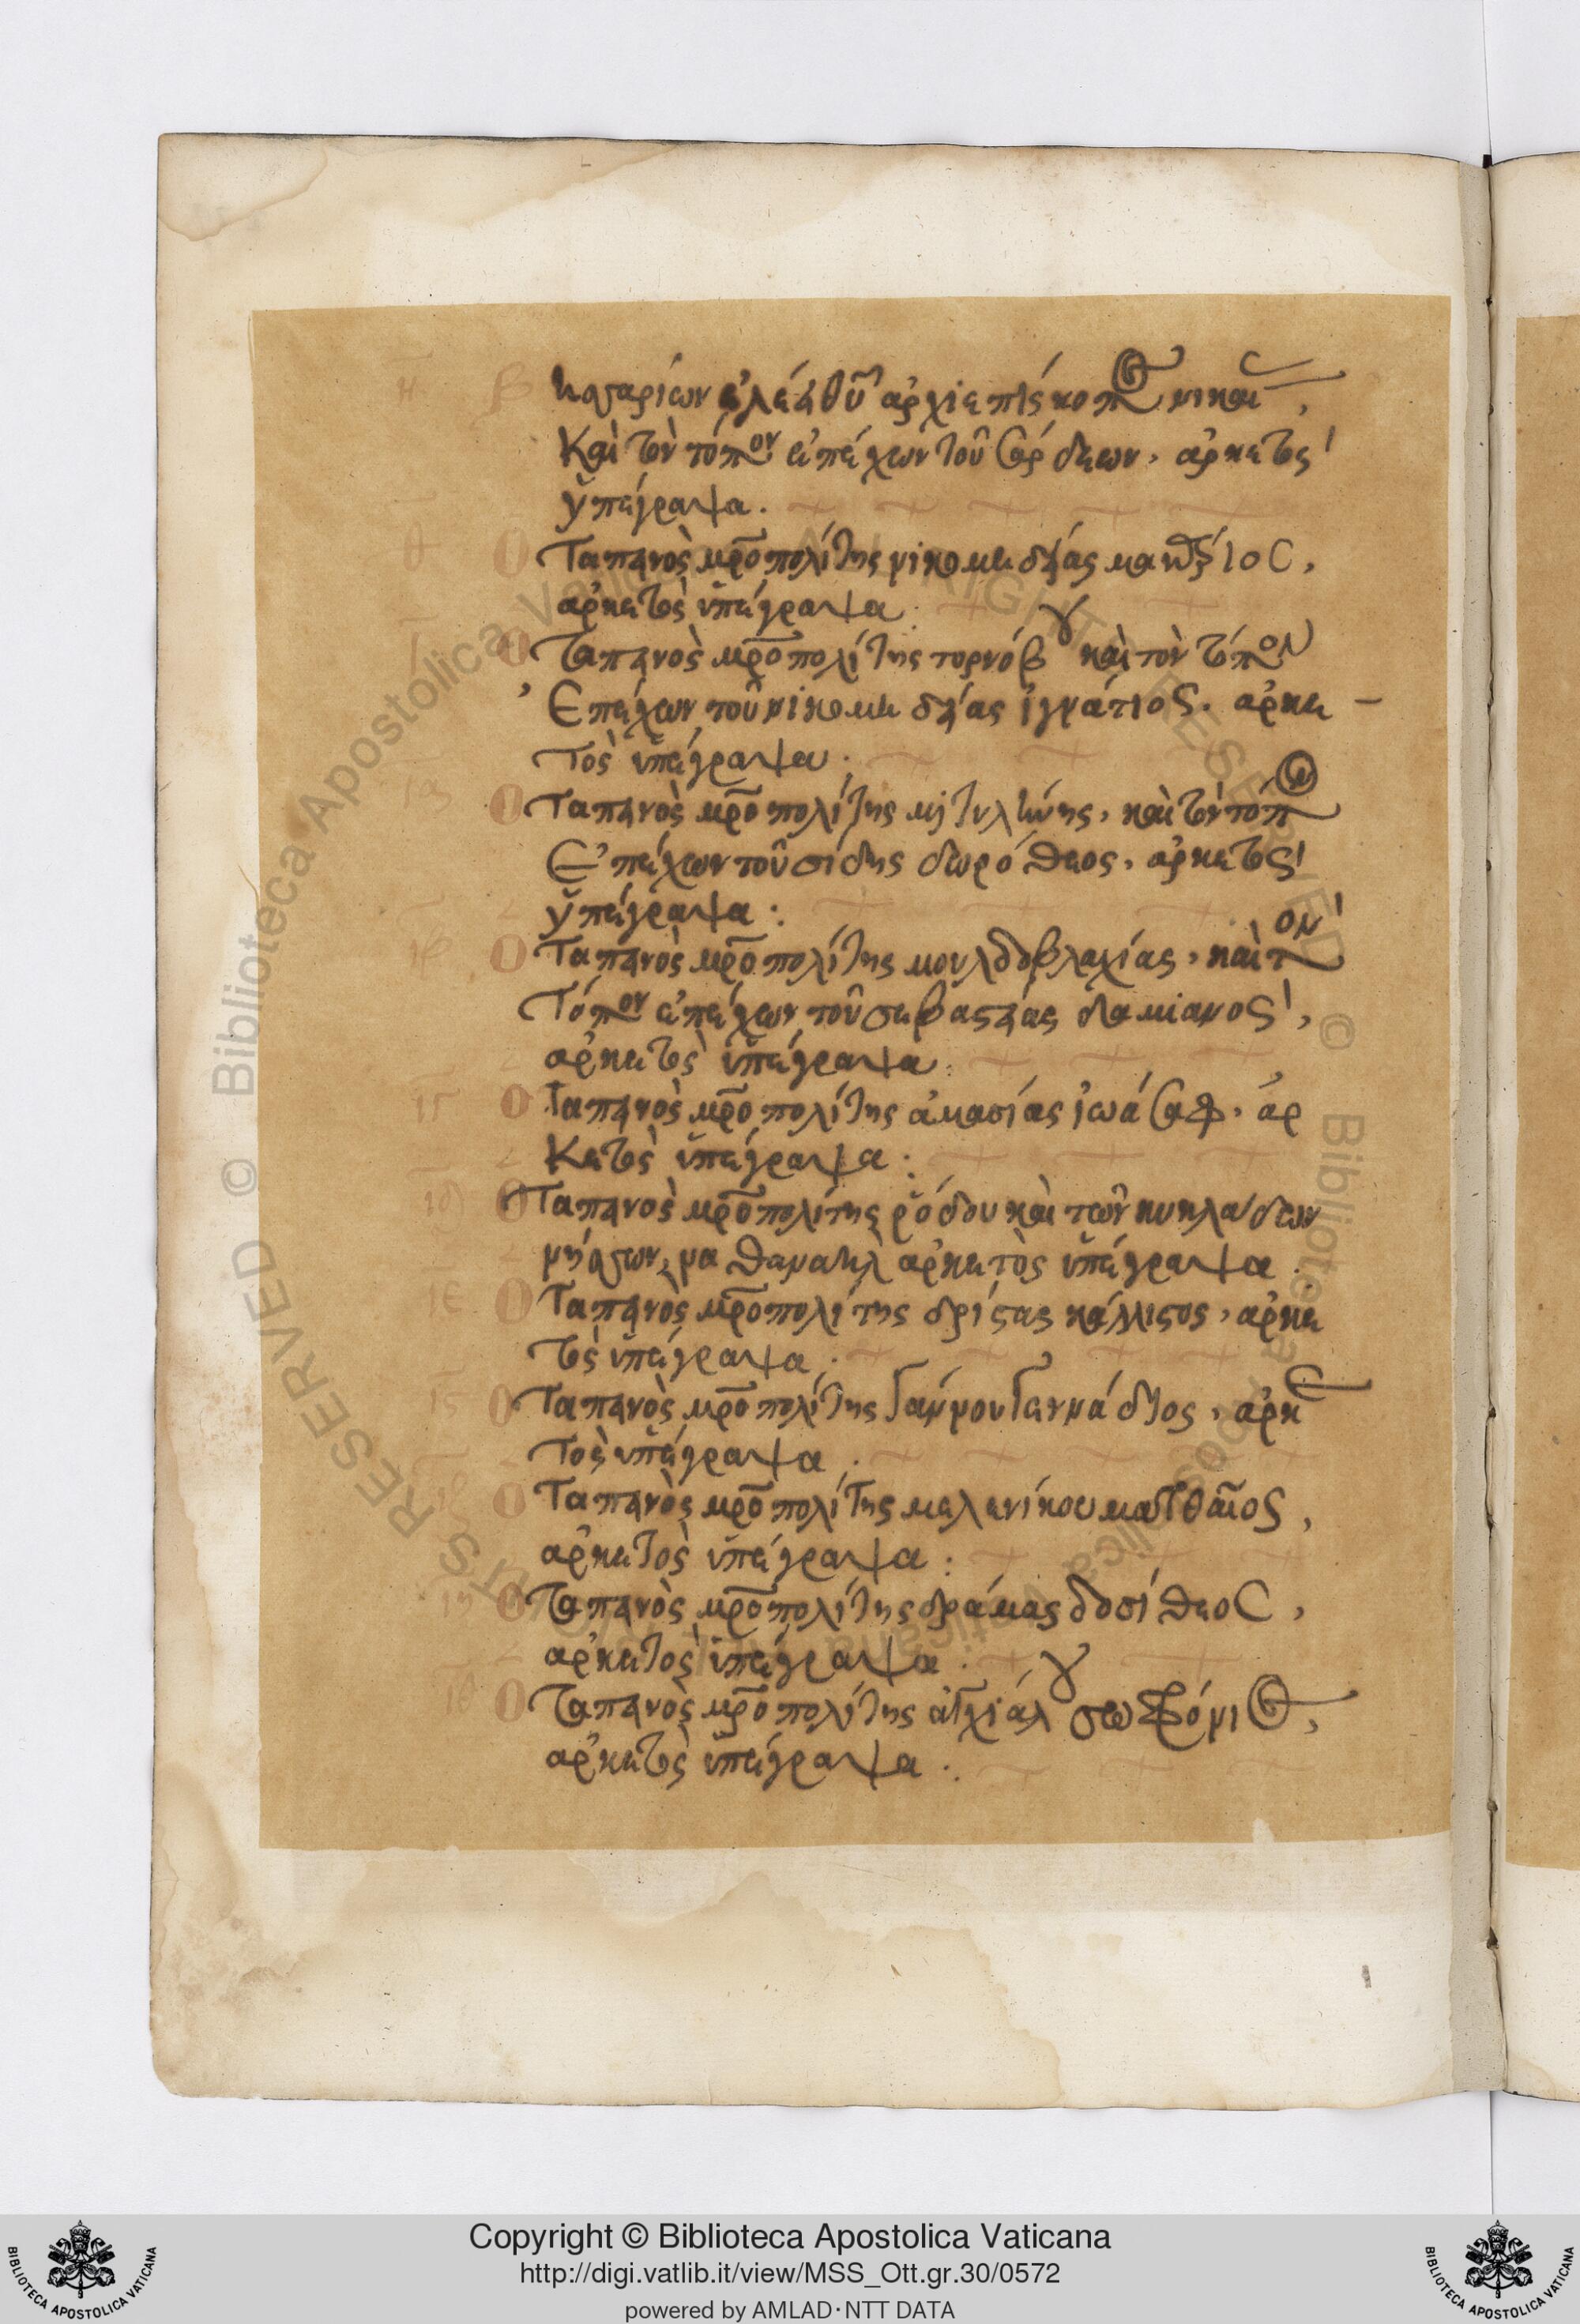 η̄ β Βησσαρίων ἐλέῳ θῡ ἀρχιεπίσκοπος νικαί,
Καὶ τὸν τόπον ἐπέχων τοῦ Σάρδεων, ἀρκετὸς
ὑπέγραψα.
θ̄ Ὁ Ταπεινὸς μρ̄οπολίτης νικομηδείας μακάριος,
ἀρκετὸς ὑπέγραψα.
ῑ Ὁ Ταπεινὸς μρ̄οπολίτης τορνόβου καὶ τὸν τόπον
Ἐπέχων τοῦ νικομηδείας ἰγνάτιος. ἀρκε-
τὸς ὑπέγραψα.
ια Ὁ Ταπεινὸς μρ̄οπολίτης μιτυλήνης, καὶ τὸν τόπον
Ἐπέχων τοῦ σίδης δωρόθεος, ἀρκετὸς
ὑπέγραψα:
ιβ Ὁ Ταπεινὸς μρ̄οπολίτης μουλδοβλαχίας, καὶ τὸν
Τόπον ἐπέχων τοῦ σεβαστείας δαμιανὸς,
ἀρκετὸς ὑπέγραψα.
ιγ Ὁ Ταπεινὸς μρ̄οπολίτης ἀμασίας ἰωάσαφ. ἀρ
Κετὸς ὑπέγραψα.
ιδ Ὁ Ταπεινὸς μρ̄οπολίτης ῥόδου καὶ τῶν κυκλάδων
νήσων, ναθαναὴλ ἀρκετὸς ὑπέγραψα.
ιε Ὁ Ταπεινὸς μρ̄οπολίτης δρίστας κάλλιστος, ἀρκε
τὸς ὑπέγραψα.
ις Ὁ Ταπεινὸς μρ̄οπολίτης Γάννου Γεννάδιος, ἀρκε
τὸς ὑπέγραψα.
ιζ Ὁ Ταπεινὸς μρ̄οπολίτης μελενίκου ματθαῖος,
ἀρκετὸς ὑπέγραψα:
ιη Ὁ Ταπεινὸς μρ̄οπολίτης δράμας δοσίθεος,
ἀρκετὸς ὑπέγραψα.
ιθ Ὁ Ταπεινὸς μρ̄οπολίτης ἀγχιάλου σωφρόνιος,
ἀρκετὸς ὑπέγραψα.
Copyright © Biblioteca Apostolica Vaticana
http://digi.vatlib.it/view/MSS_Ott.gr.30/0572
powered by AMLAD·NTT DATA
BIBLIOTECA APOSTOLICA VATICANA
BIBLIOTECA APOSTOLICA VATICANA